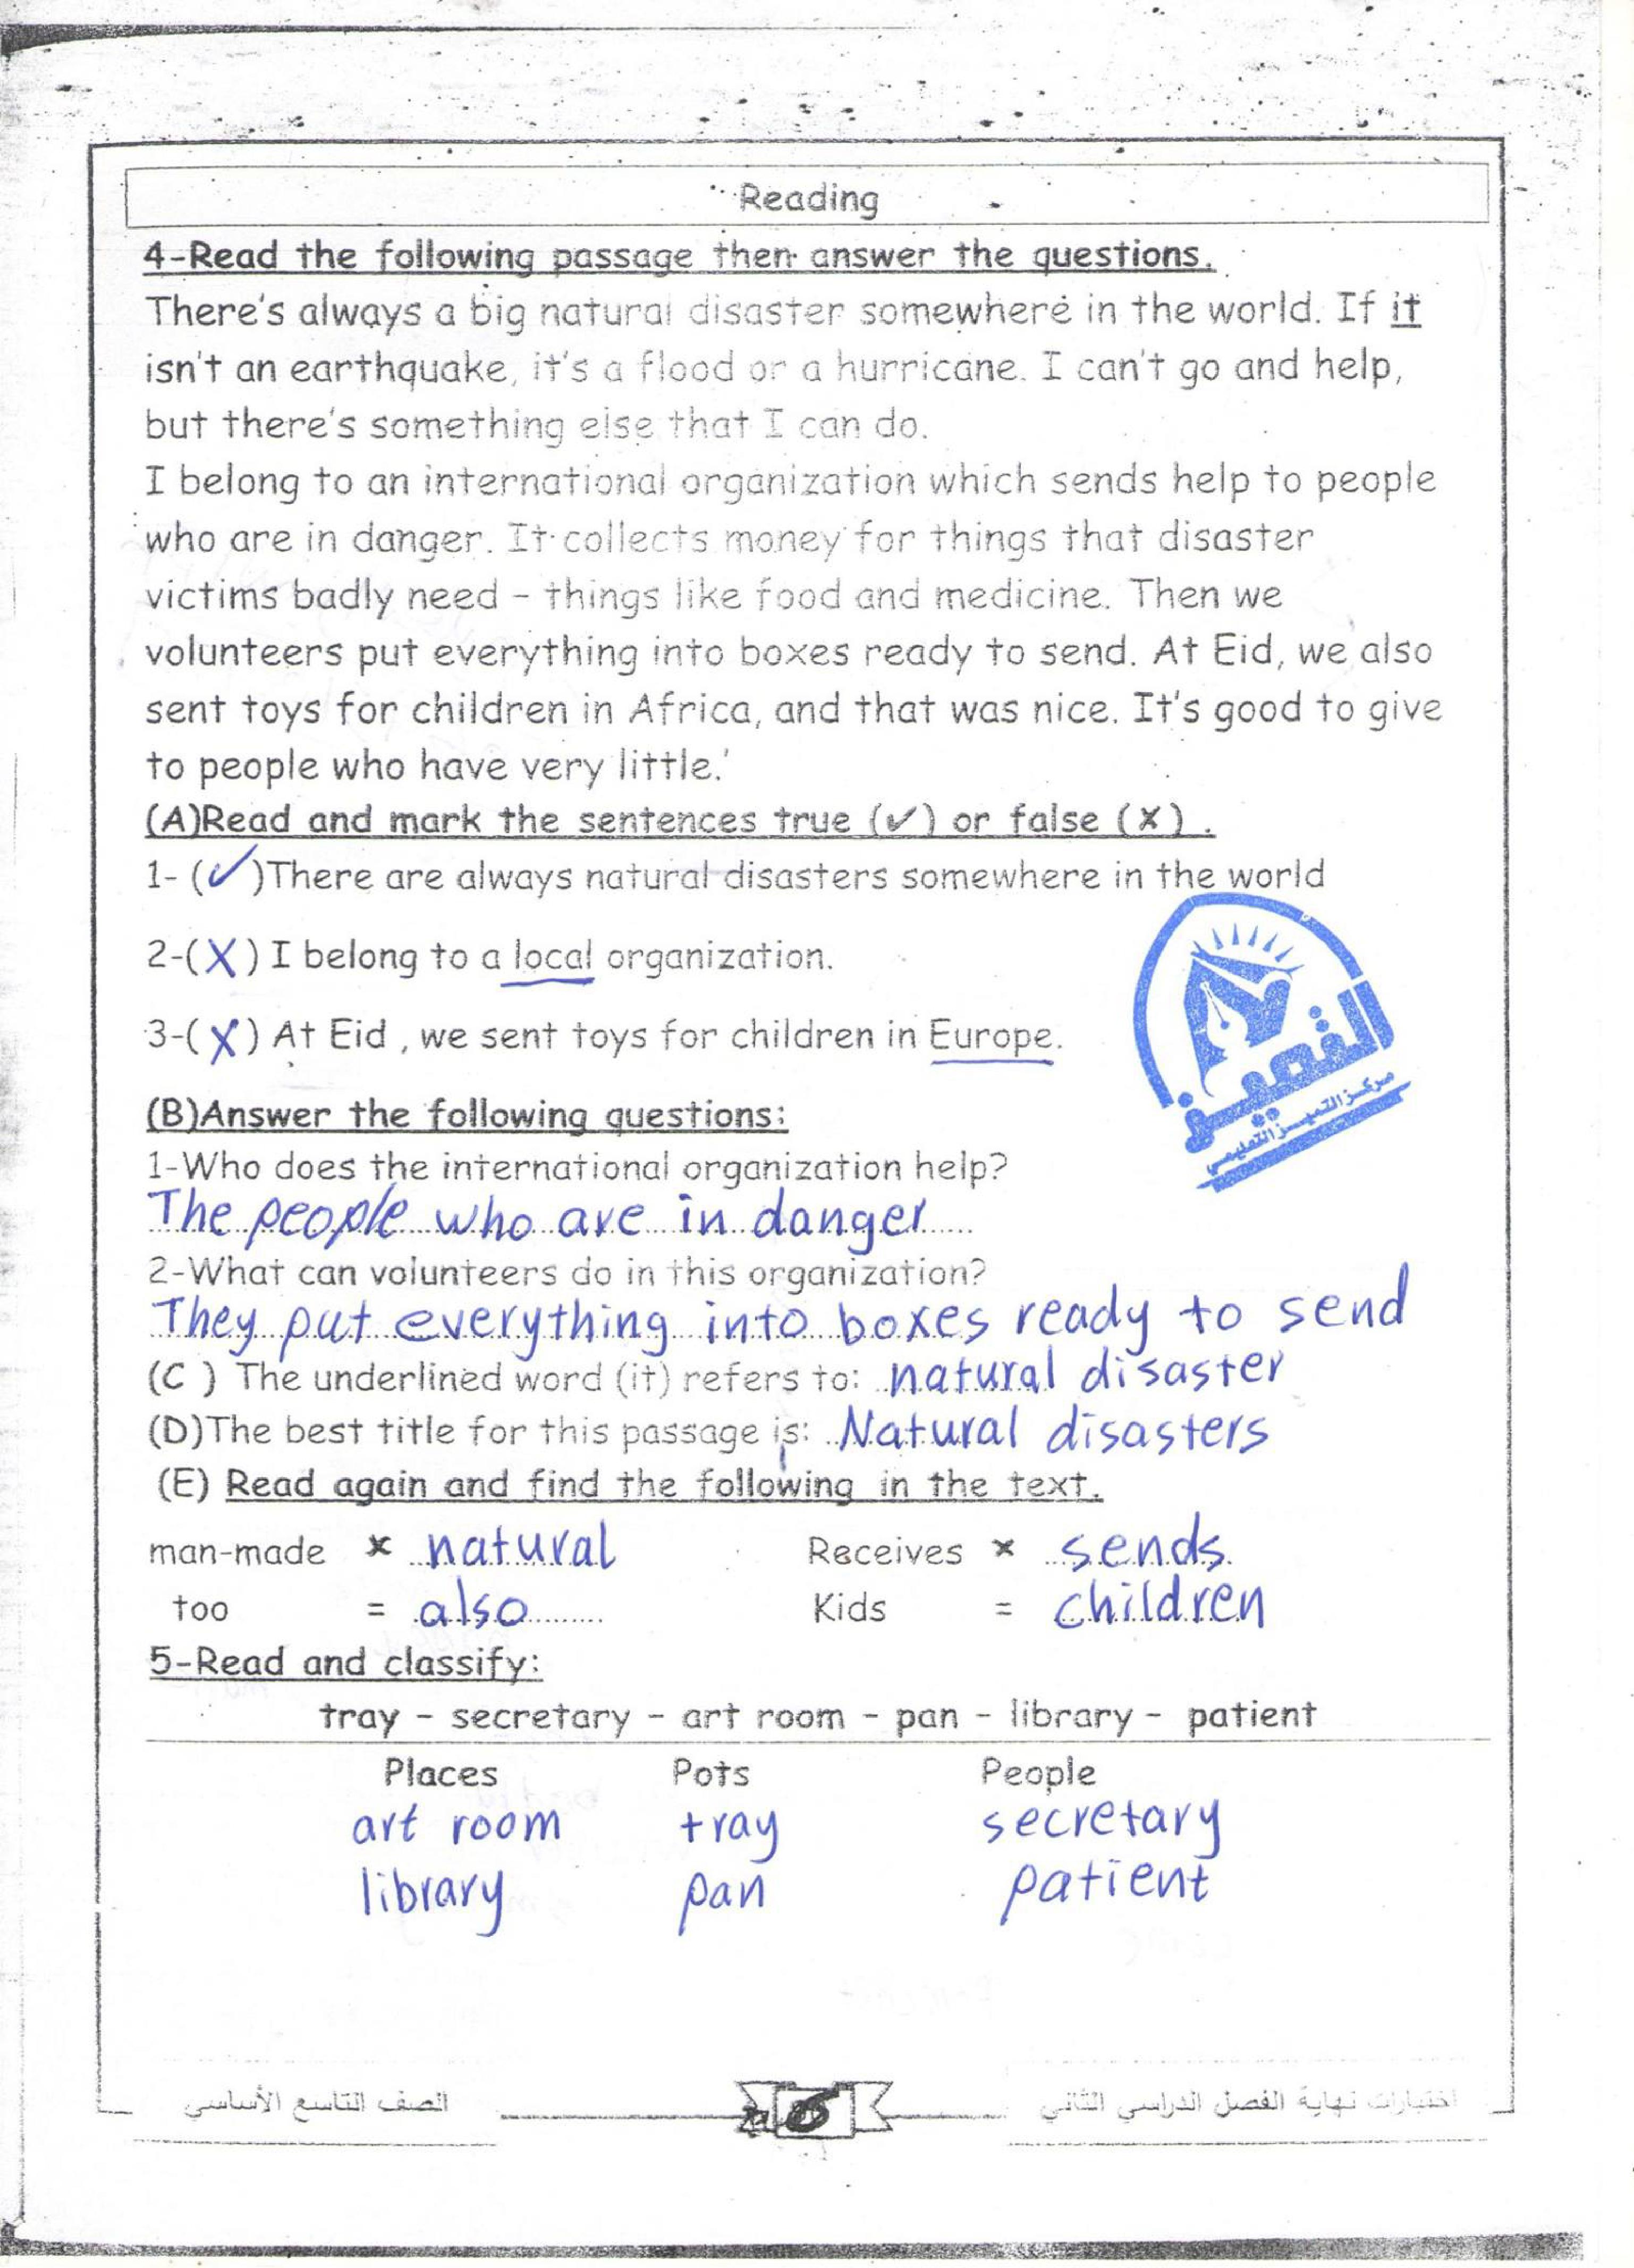 Reading
4-Read the following passage then answer the questions.
There's always a big natural disaster somewhere in the world. If it
isn't an earthquake, it's a flood or a hurricane. I can't go and help,
but there's something else that I can do.
I belong to an international organization which sends help to people
who are in danger. It collects money for things that disaster
victims badly need - things like food and medicine. Then we
volunteers put everything into boxes ready to send. At Eid, we also
sent toys for children in Africa, and that was nice. It's good to give
to people who have very little.'
(A)Read and mark the sentences true (✓) or false (X) .
1- (✓)There are always natural disasters somewhere in the world
2-(X) I belong to a local organization.
3-(X) At Eid , we sent toys for children in Europe.
التميز
مركز التميز التعليمي
(B)Answer the following questions:
1-Who does the international organization help?
The people who are in danger
2-What can volunteers do in this organization?
They put everything into boxes ready to send
(C ) The underlined word (it) refers to: natural disaster
(D)The best title for this passage is: Natural disasters
(E) Read again and find the following in the text.
man-made x natural Receives x sends
too = also Kids = children
5-Read and classify:
tray - secretary - art room - pan - library - patient
Places Pots People
art room tray secretary
library pan patient
اختبارات نهاية الفصل الدراسي الثاني الصف التاسع الأساسي